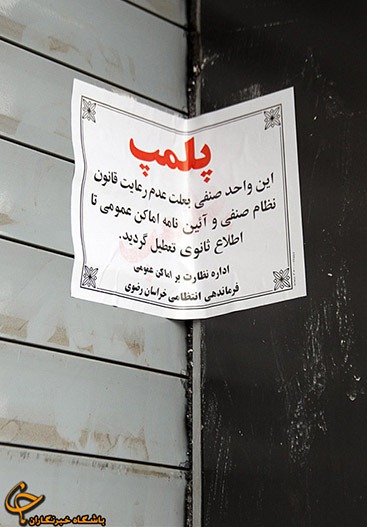 پلمپ
این واحد صنفی بعلت عدم رعایت قانون
نظام صنفی و آئین نامه اماکن عمومی تا
اطلاع ثانوی تعطیل گردید.
اداره نظارت بر اماکن عمومی
فرماندهی انتظامی خراسان رضوی
باشگاه خبرنگاران